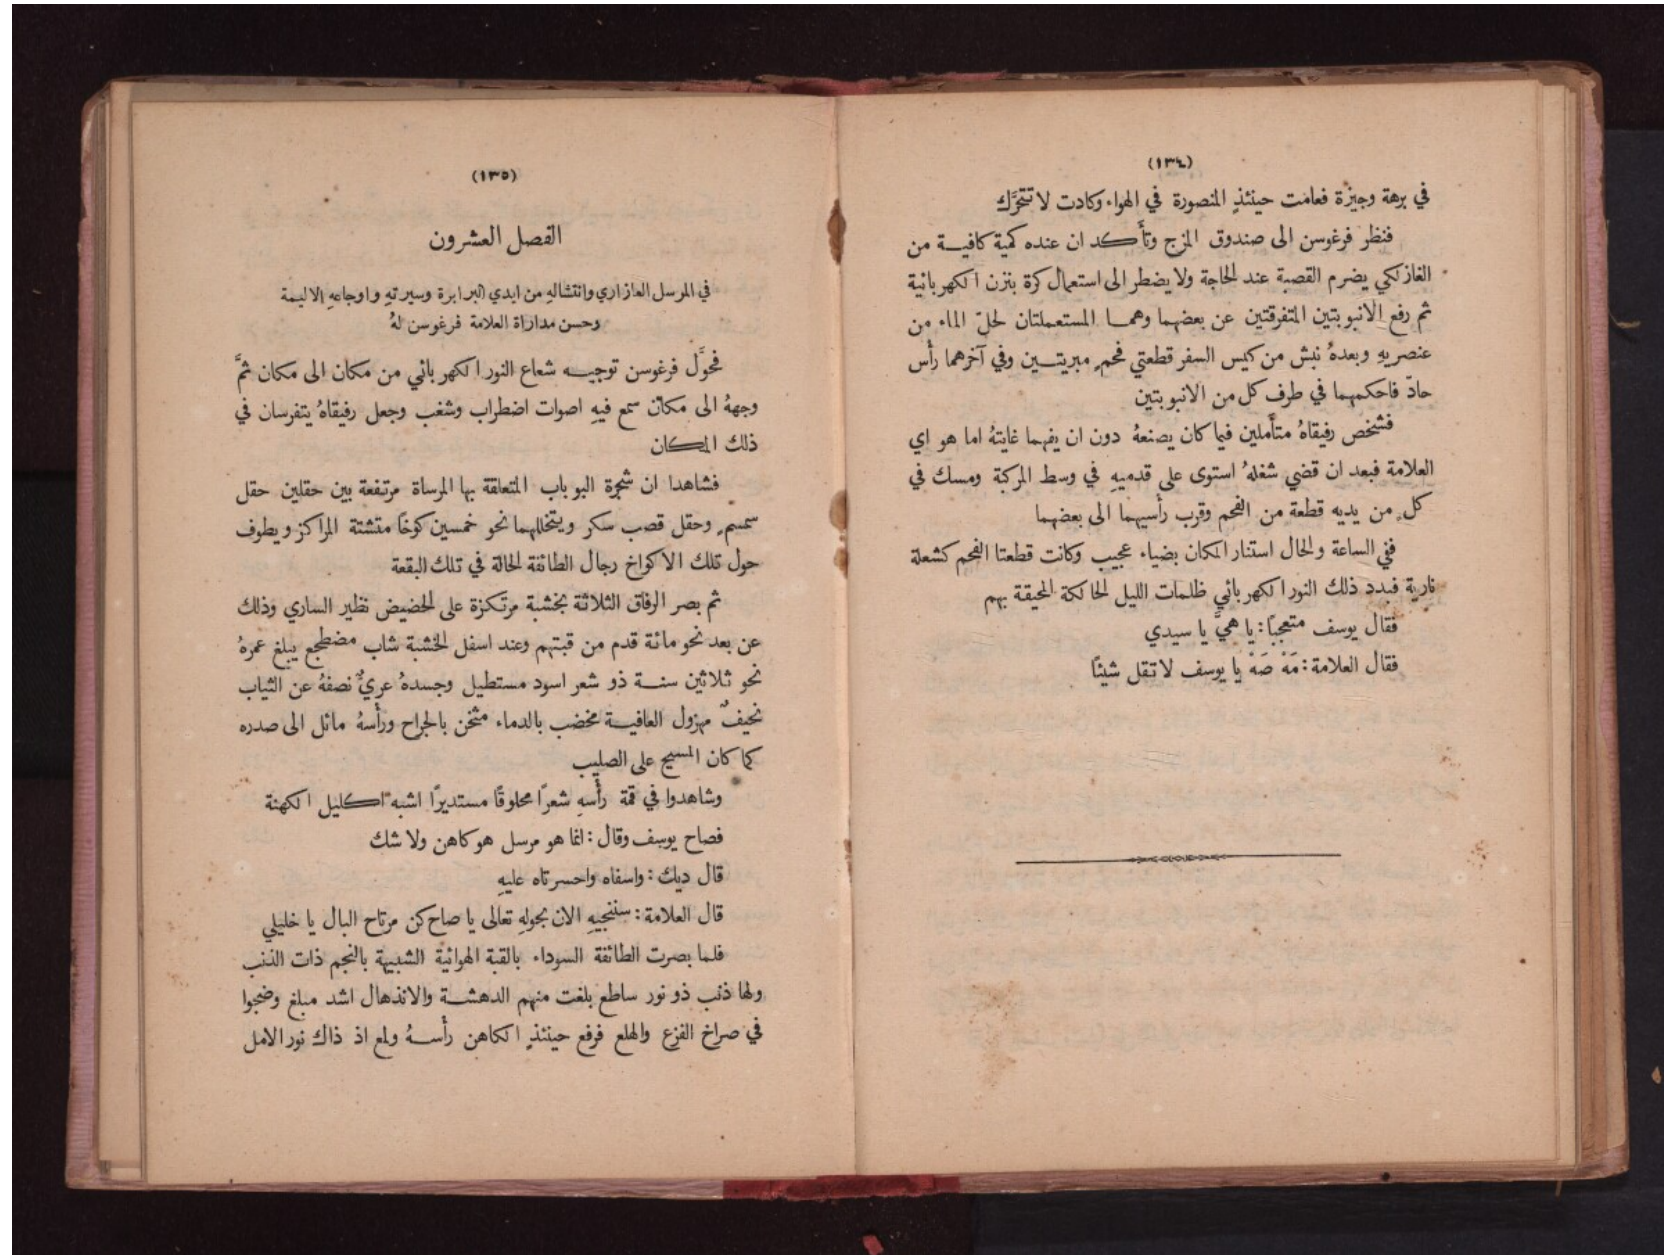 (١٣٤)
في برهة وجيزة فعامت حينئذٍ المنصورة في الهواء وكادت لا تتحرَّك
فنظر فرغوسن الى صندوق المزج وتأَكد ان عنده كمية كافية من
الغاز لكي يضرم القصبة عند الحاجة ولا يضطر الى استعمال كرة بنزن الكهربائية
ثم رفع الانبوبتين المتفرقتين عن بعضهما وهما المستعملتان لحلّ الماء من
عنصريهِ وبعدهُ نبش من كيس السفر قطعتي فحمٍ مبريتين وفي آخرهما رأْس
حادّ فاحكمهما في طرف كل من الانبوبتين
فشخص رفيقاهُ متأَملين فيما كان يصنعهُ دون ان يفهما غايتهُ اما هو اي
العلامة فبعد ان قضي شغلهُ استوى على قدميهِ في وسط المركبة ومسك في
كلٍ من يديه قطعة من الفحم وقرب رأْسيهما الى بعضهما
ففي الساعة والحال استنار المكان بضياء عجيب وكانت قطعتا الفحم كشعلة
نارية فبدد ذلك النور الكهربائي ظلمات الليل الحالكة المحيقة بهم
فقال يوسف متعجبًا: يا هيَّ يا سيدي
فقال العلامة: مَهْ صَهْ يا يوسف لا تقل شيئًا
(١٣٥)
الفصل العشرون
في المرسل العازاري وانتشالهِ من ايدي البرابرة وسيرتهِ واوجاعهِ الاليمة
وحسن مداراة العلامة فرغوسن لهُ
فحوَّل فرغوسن توجيه شعاع النور الكهربائي من مكان الى مكان ثمَّ
وجههُ الى مكان سمع فيهِ اصوات اضطراب وشغب وجعل رفيقاهُ يتفرسان في
ذلك المكان
فشاهدا ان شجرة البوباب المتعلقة بها المرساة مرتفعة بين حقلين حقل
سمسمٍ وحقل قصب سكر ويتخللهما نحو خمسين كوخًا متشتتة المراكز ويطوف
حول تلك الاكواخ رجال الطائفة الحالة في تلك البقعة
ثم بصر الرفاق الثلاثة بخشبة مرتكزة على الحضيض نظير الساري وذلك
عن بعد نحو مائة قدم من قبتهم وعند اسفل الخشبة شاب مضطجع يبلغ عمرهُ
نحو ثلاثين سنة ذو شعر اسود مستطيل وجسدهُ عريٌ نصفهُ عن الثياب
نحيفٌ مهزول العافية مخضب بالدماء مثخن بالجراح ورأْسهُ مائل الى صدره
كما كان المسيح على الصليب
وشاهدوا في قمة رأْسهِ شعرًا محلوقًا مستديرًا اشبه اكليل الكهنة
فصاح يوسف وقال: انما هو مرسل هو كاهن ولا شك
قال ديك: وااسفاه واحسرتاه عليهِ
قال العلامة: سننجيهِ الان بحولهِ تعالى يا صاح كن مرتاح البال يا خليلي
فلما بصرت الطائفة السوداء بالقبة الهوائية الشبيهة بالنجم ذات الذنب
ولها ذنب ذو نور ساطع بلغت منهم الدهشة والانذهال اشد مبلغ وضجوا
في صراخ الفزع والهلع فرفع حينئذٍ الكاهن رأْسهُ ولمع اذ ذاك نور الامل